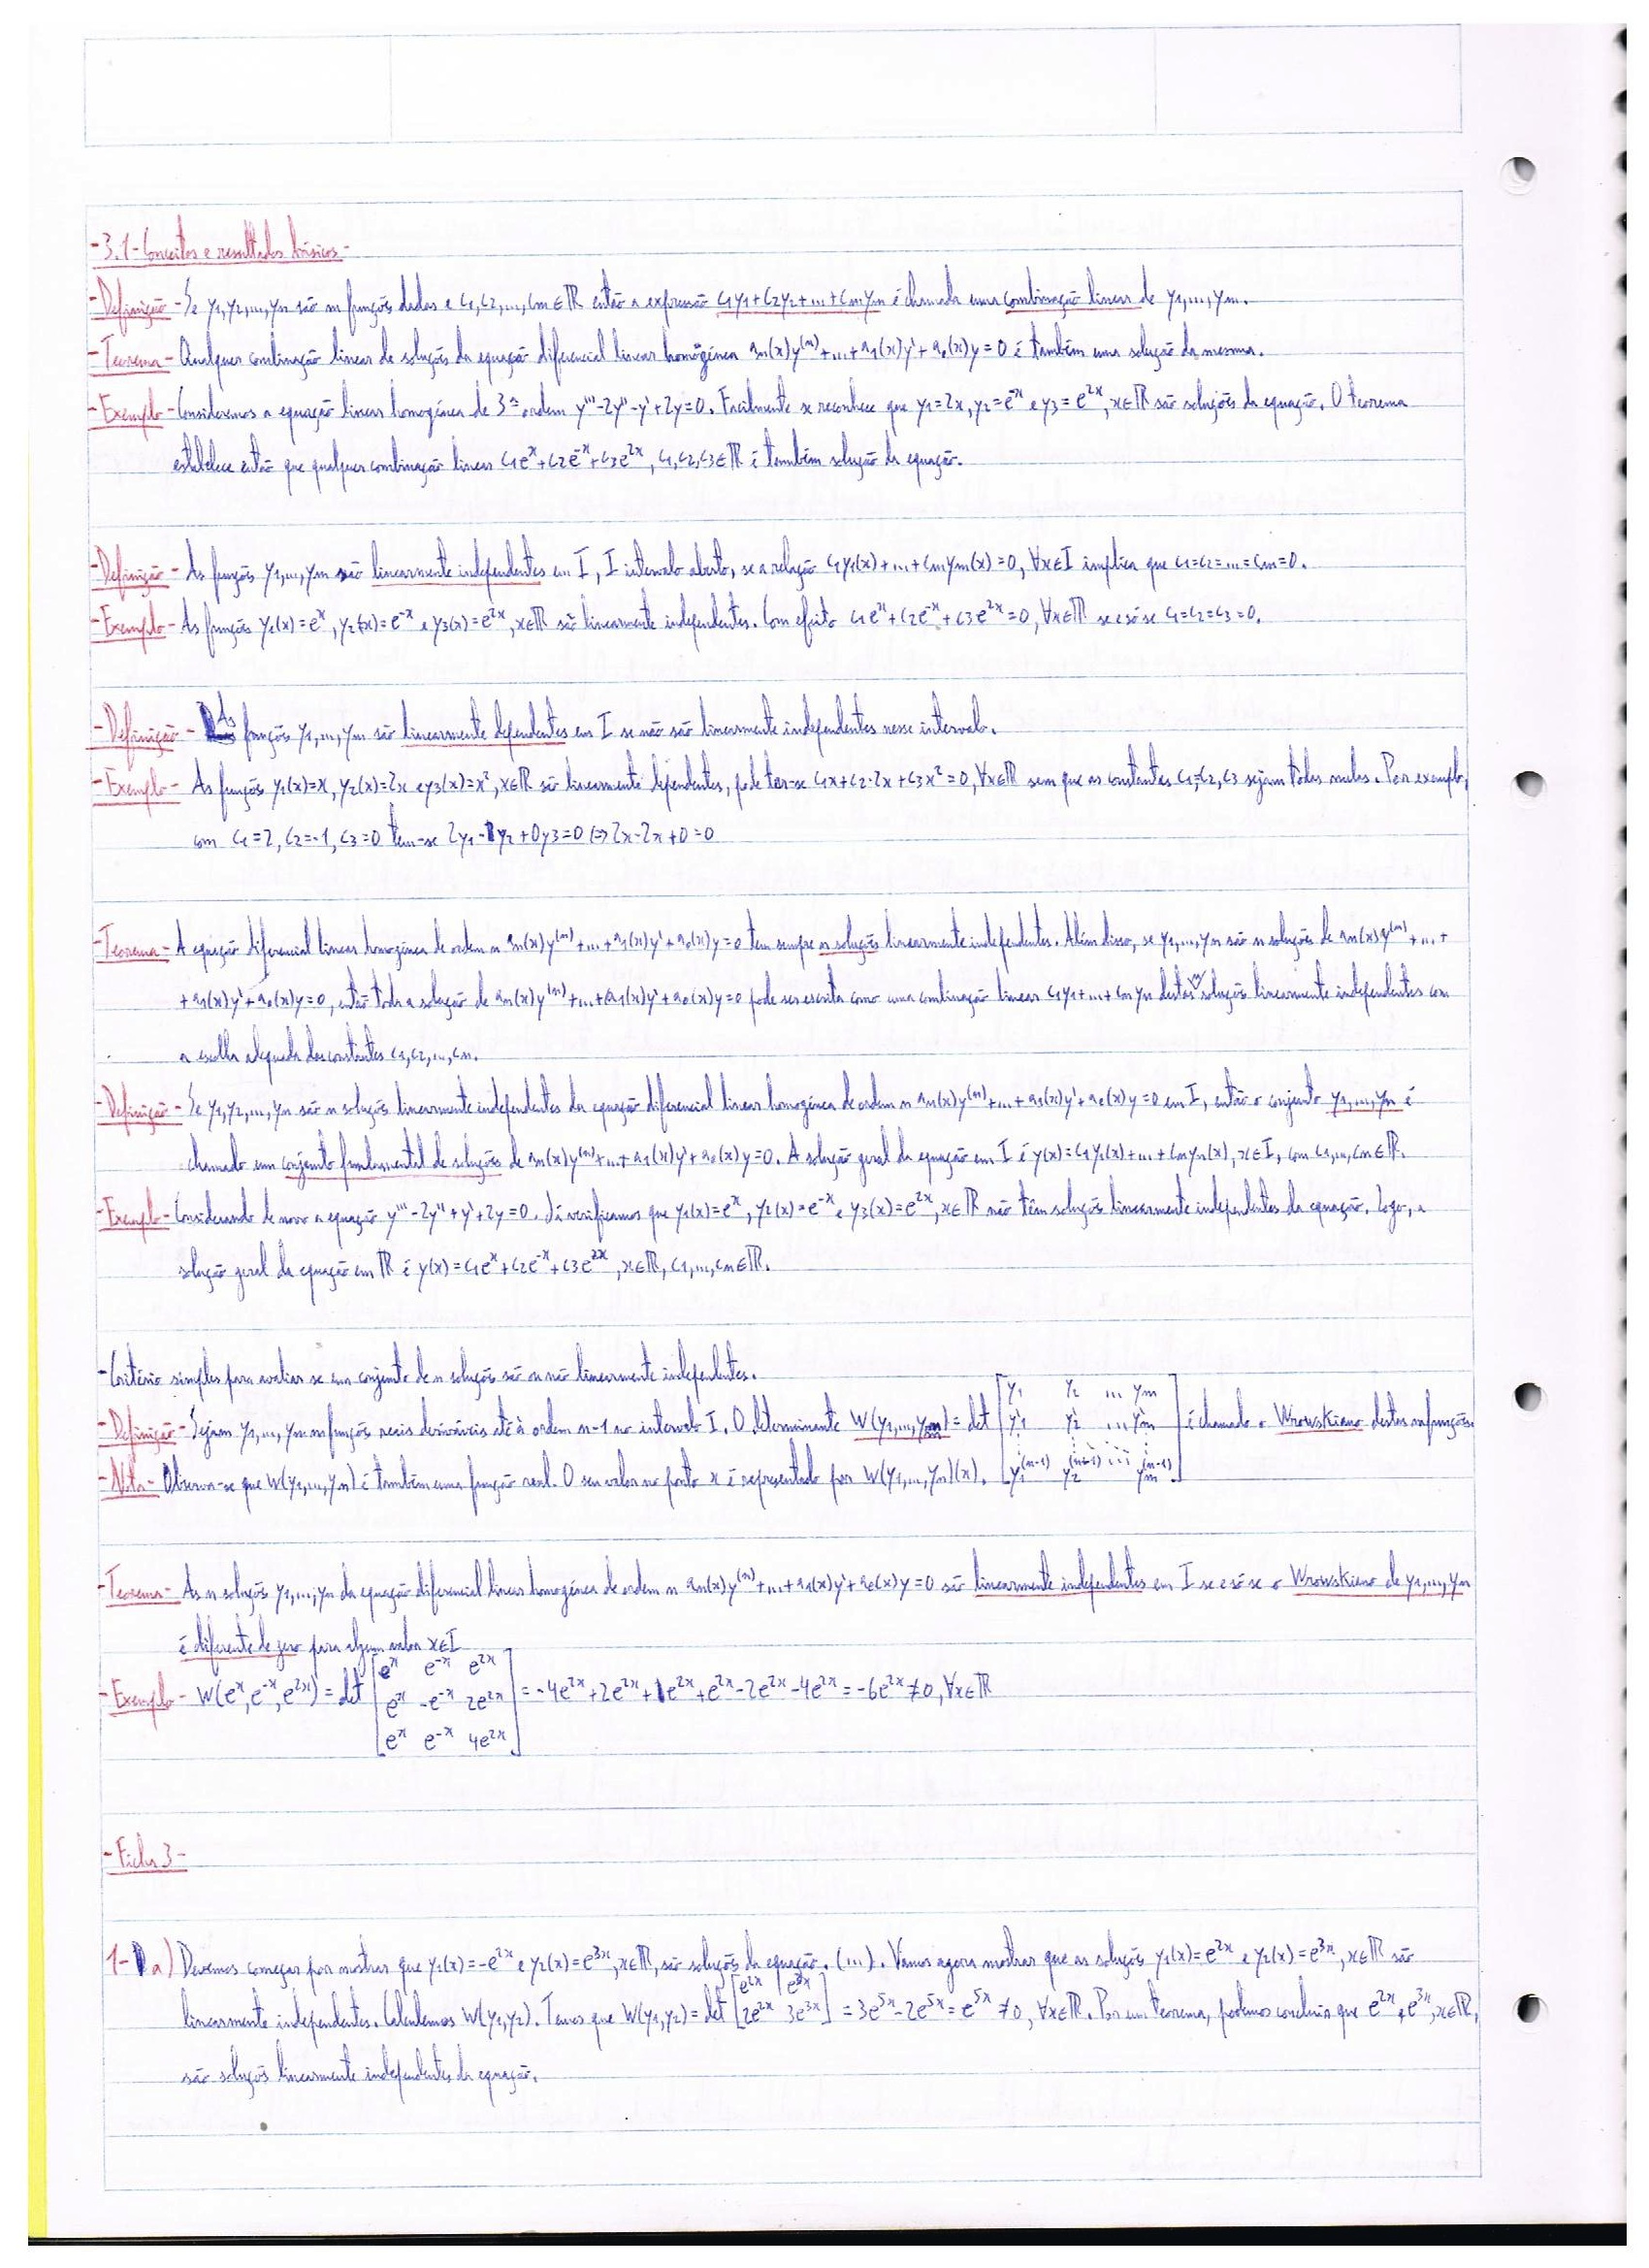 -3.1-Conceitos e resultados básicos-
-Definição- Se y1,y2,...,yn são n funções dadas e c1,c2,...,cn∈ℝ então a expressão c1y1+c2y2+...+cnyn é chamada uma combinação linear de y1,...,yn.
-Teorema- Qualquer combinação linear de soluções da equação diferencial linear homogénea an(x)y^(n)+...+a1(x)y'+a0(x)y=0 é também uma solução da mesma.
-Exemplo- Consideremos a equação linear homogénea de 3ª ordem y'''-2y''-y'+2y=0. Facilmente se reconhece que y1=2x, y2=e^-x e y3=e^2x, x∈ℝ são soluções da equação. O teorema
estabelece então que qualquer combinação linear c1e^x+c2e^-x+c3e^2x, c1,c2,c3∈ℝ é também solução da equação.
-Definição- As funções y1,...,yn são linearmente independentes em I, I intervalo aberto, se a relação c1y1(x)+...+cnyn(x)=0, ∀x∈I implica que c1=c2=...=cn=0.
-Exemplo- As funções y1(x)=e^x, y2(x)=e^-x e y3(x)=e^2x, x∈ℝ são linearmente independentes. Com efeito c1e^x+c2e^-x+c3e^2x=0, ∀x∈ℝ se e só se c1=c2=c3=0.
-Definição- As funções y1,...,yn são linearmente dependentes em I se não são linearmente independentes nesse intervalo.
-Exemplo- As funções y1(x)=x, y2(x)=2x e y3(x)=x², x∈ℝ são linearmente dependentes, pode ter-se c1x+c2·2x+c3x²=0, ∀x∈ℝ sem que as constantes c1,c2,c3 sejam todas nulas. Por exemplo,
com c1=2, c2=-1, c3=0 tem-se 2y1-1y2+0y3=0 ⇔ 2x-2x+0=0
-Teorema- A equação diferencial linear homogénea de ordem n an(x)y^(n)+...+a1(x)y'+a0(x)y=0 tem sempre n soluções linearmente independentes. Além disso, se y1,...,yn são n soluções de an(x)y^(n)+...+
+a1(x)y'+a0(x)y=0, então toda a solução de an(x)y^(n)+...+a1(x)y'+a0(x)y=0 pode ser escrita como uma combinação linear c1y1+...+cnyn destas soluções linearmente independentes com
a escolha adequada das constantes c1,c2,...,cn.
-Definição- Se y1,y2,...,yn são n soluções linearmente independentes da equação diferencial linear homogénea de ordem n an(x)y^(n)+...+a1(x)y'+a0(x)y=0 em I, então o conjunto y1,...,yn é
chamado um conjunto fundamental de soluções de an(x)y^(n)+...+a1(x)y'+a0(x)y=0. A solução geral da equação em I é y(x)=c1y1(x)+...+cnyn(x), x∈I, com c1,...,cn∈ℝ.
-Exemplo- Considerando de novo a equação y'''-2y''+y'+2y=0. Já verificamos que y1(x)=e^x, y2(x)=e^-x e y3(x)=e^2x, x∈ℝ não têm soluções linearmente independentes da equação. Logo, a
solução geral da equação em ℝ é y(x)=c1e^x+c2e^-x+c3e^2x, x∈ℝ, c1,...,cn∈ℝ.
-Critério simples para avaliar se um conjunto de n soluções são ou não linearmente independentes.
-Definição- Sejam y1,...,yn n funções reais deriváveis até à ordem n-1 no intervalo I. O determinante W(y1,...,yn)= det [y1 y2 ... yn; y'1 y'2 ... y'n; ⋮ ⋮ ⋱ ⋮; y1^(n-1) y2^(n-1) ... yn^(n-1)] é chamado o Wronskiano destas n funções.
-Nota- Observa-se que W(y1,...,yn) é também uma função real. O seu valor no ponto x é representado por W(y1,...,yn)(x).
-Teorema- As n soluções y1,...,yn da equação diferencial linear homogénea de ordem n an(x)y^(n)+...+a1(x)y'+a0(x)y=0 são linearmente independentes em I se e só se o Wronskiano de y1,...,yn
é diferente de zero para algum valor x∈I
-Exemplo- W(e^x,e^-x,e^2x)= det [e^x e^-x e^2x; e^x -e^-x 2e^2x; e^x e^-x 4e^2x] = -4e^2x+2e^2x+1e^2x+e^2x-2e^2x-4e^2x=-6e^2x≠0, ∀x∈ℝ
-Ficha 3-
1- a) Devemos começar por mostrar que y1(x)=-e^2x e y2(x)=e^3x, x∈ℝ, são soluções da equação. (...). Vamos agora mostrar que as soluções y1(x)=e^2x e y2(x)=e^3x, x∈ℝ são
linearmente independentes. Calculemos W(y1,y2). Temos que W(y1,y2)= det [e^2x e^3x; 2e^2x 3e^3x] = 3e^5x-2e^5x=e^5x≠0, ∀x∈ℝ. Por um teorema, podemos concluir que e^2x e e^3x, x∈ℝ,
são soluções linearmente independentes da equação.